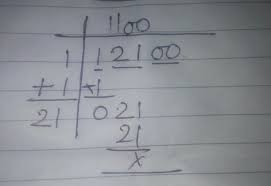 1100
1 1 21 00
+1 x1
21 021
21
x